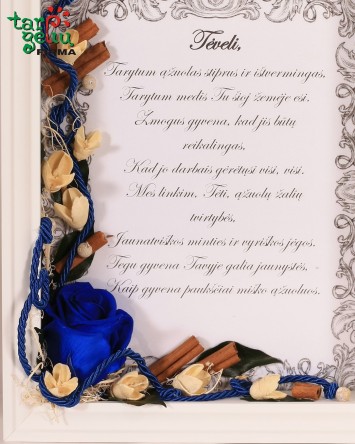 tarp
gėlių
FIRMA
Tėveli,
Tarytum ąžuolas stiprus ir ištvermingas,
Tarytum medis Tu šioj žemėje esi.
Žmogus gyvena, kad jis būtų
reikalingas,
Kad jo darbais gėrėtųsi visi, visi.
Mes linkim, Tėti, ąžuolų žalių
tvirtybės,
Jaunatviškos minties ir vyriškos jėgos.
Tegu gyvena Tavyje galia jaunystės, -
Kaip gyvena paukščiai miško ąžuoluos.